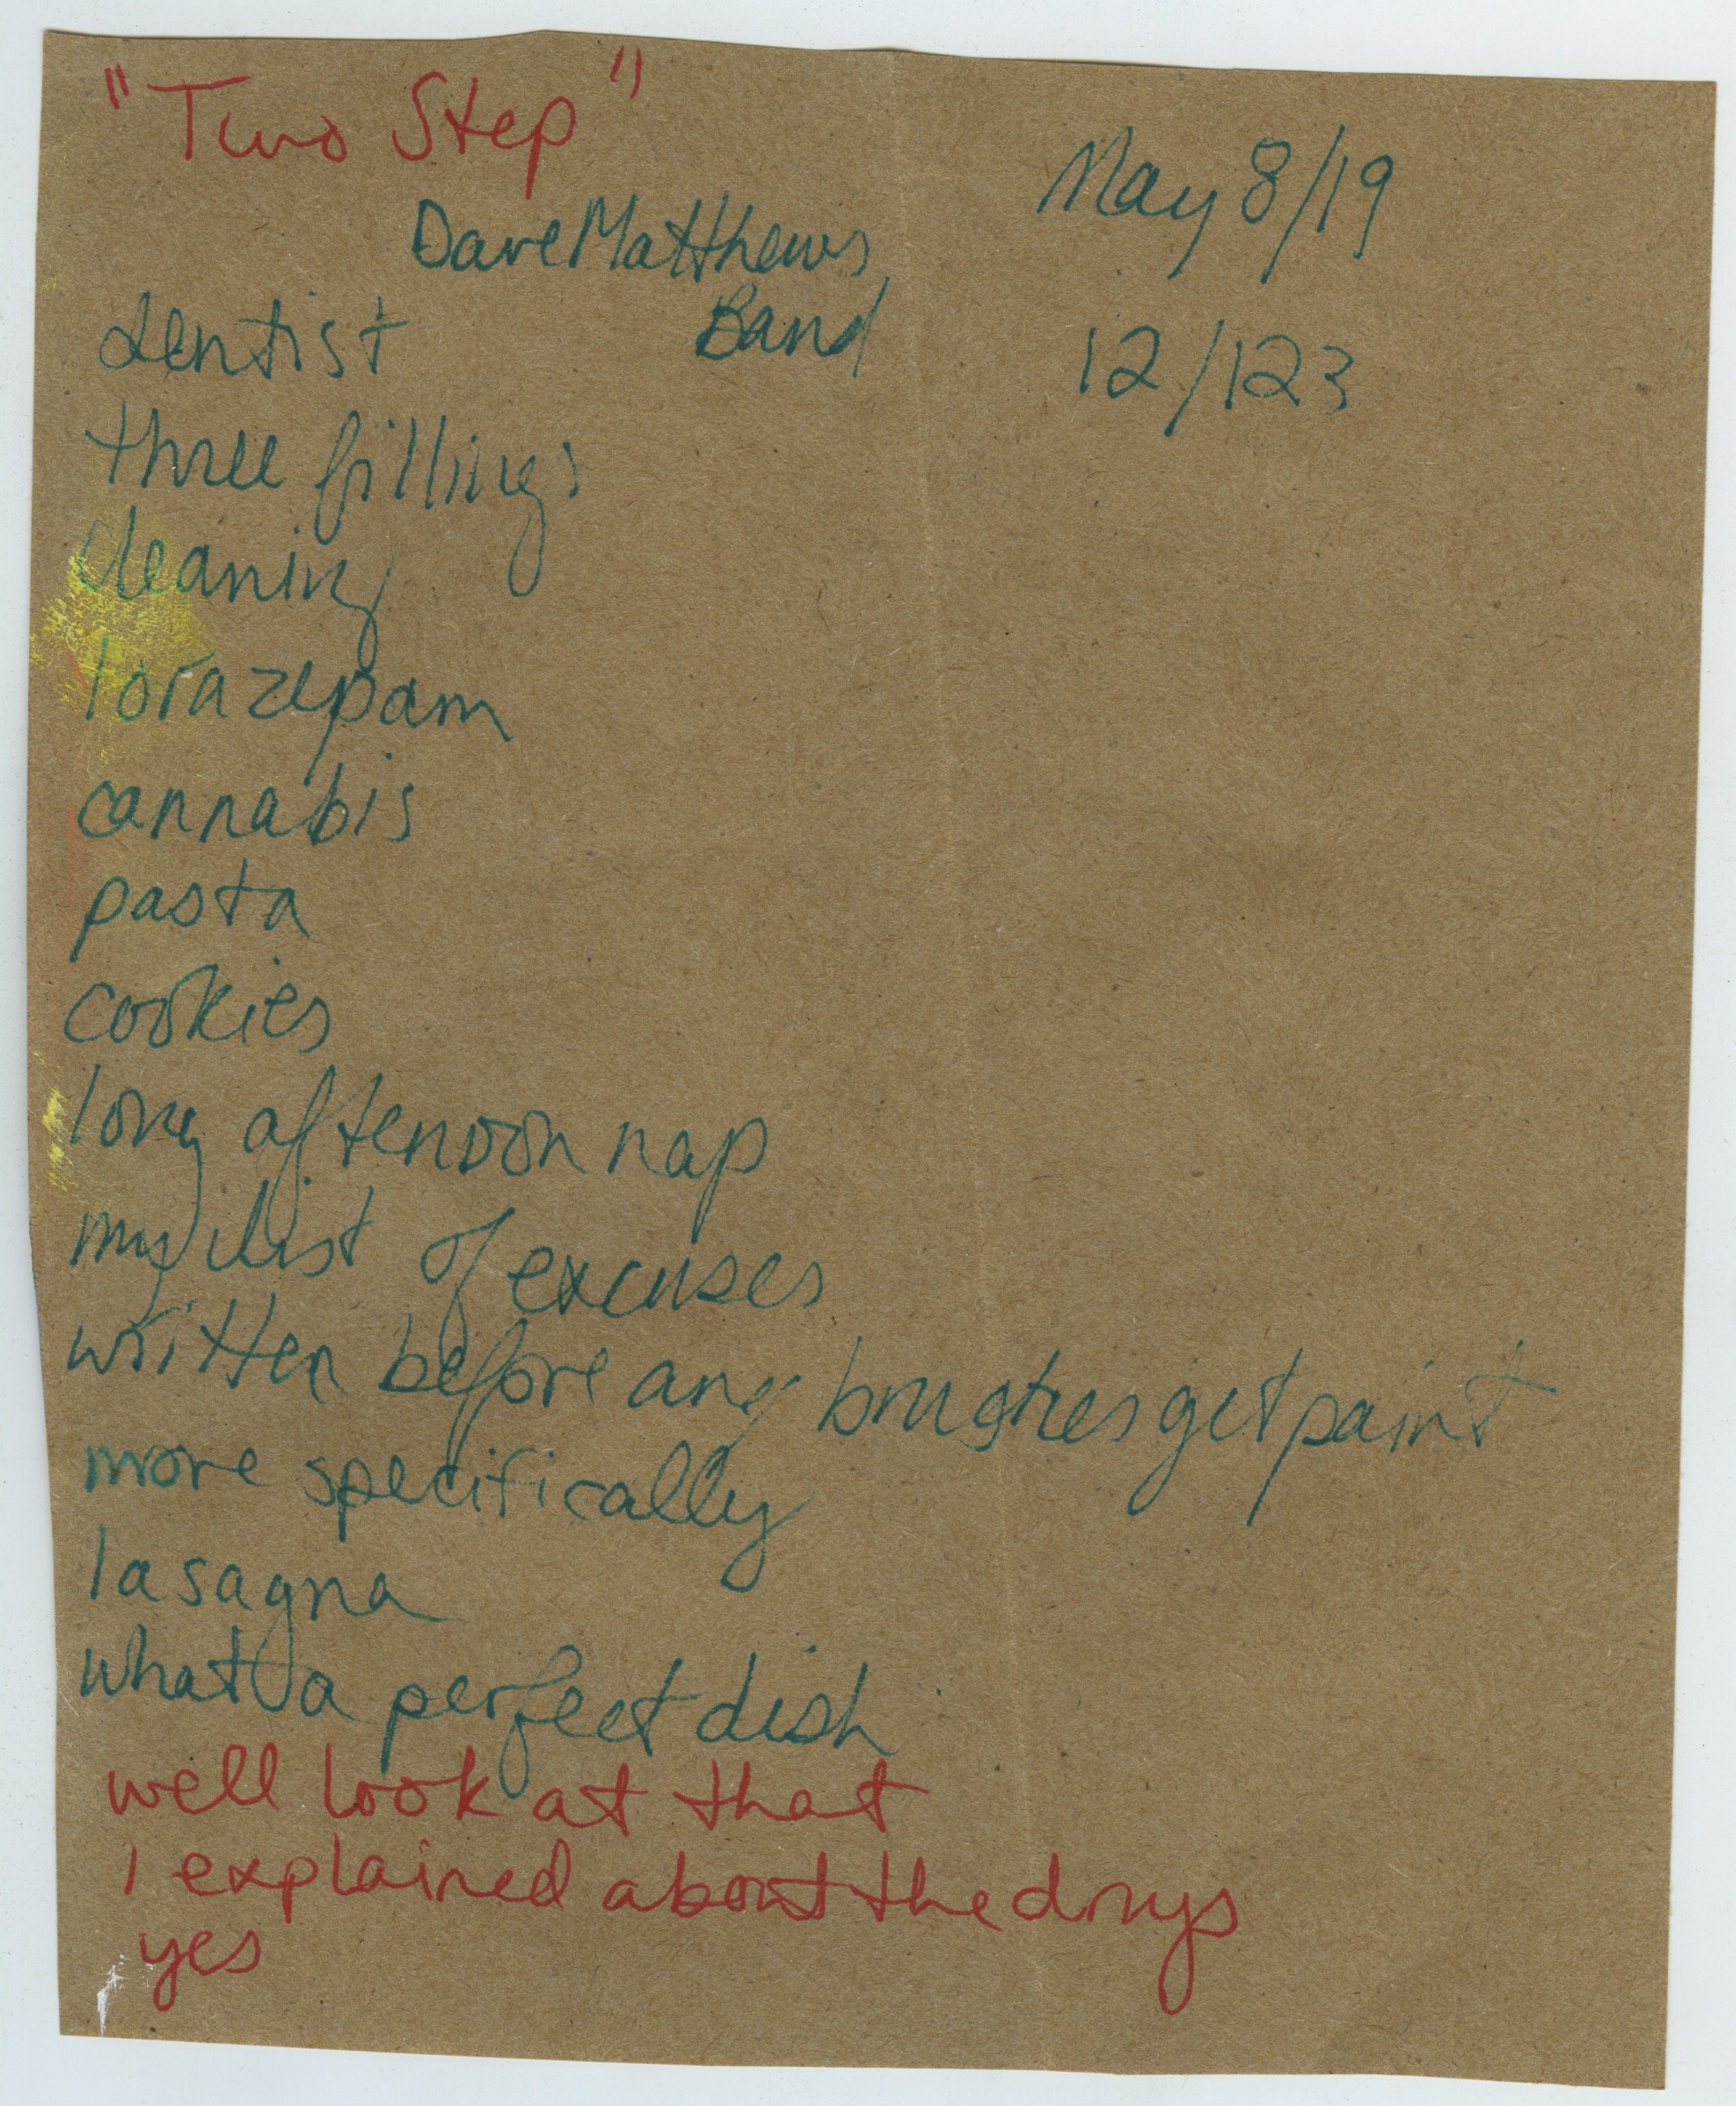 "Two Step"
Dave Matthews
Band
May 8/19
12/123
dentist
three fillings
cleaning
lorazepam
cannabis
pasta
cookies
long afternoon nap
my list of excuses
written before any brushes get paint
more specifically
lasagna
what a perfect dish
well look at that
I explained about the drugs
yes